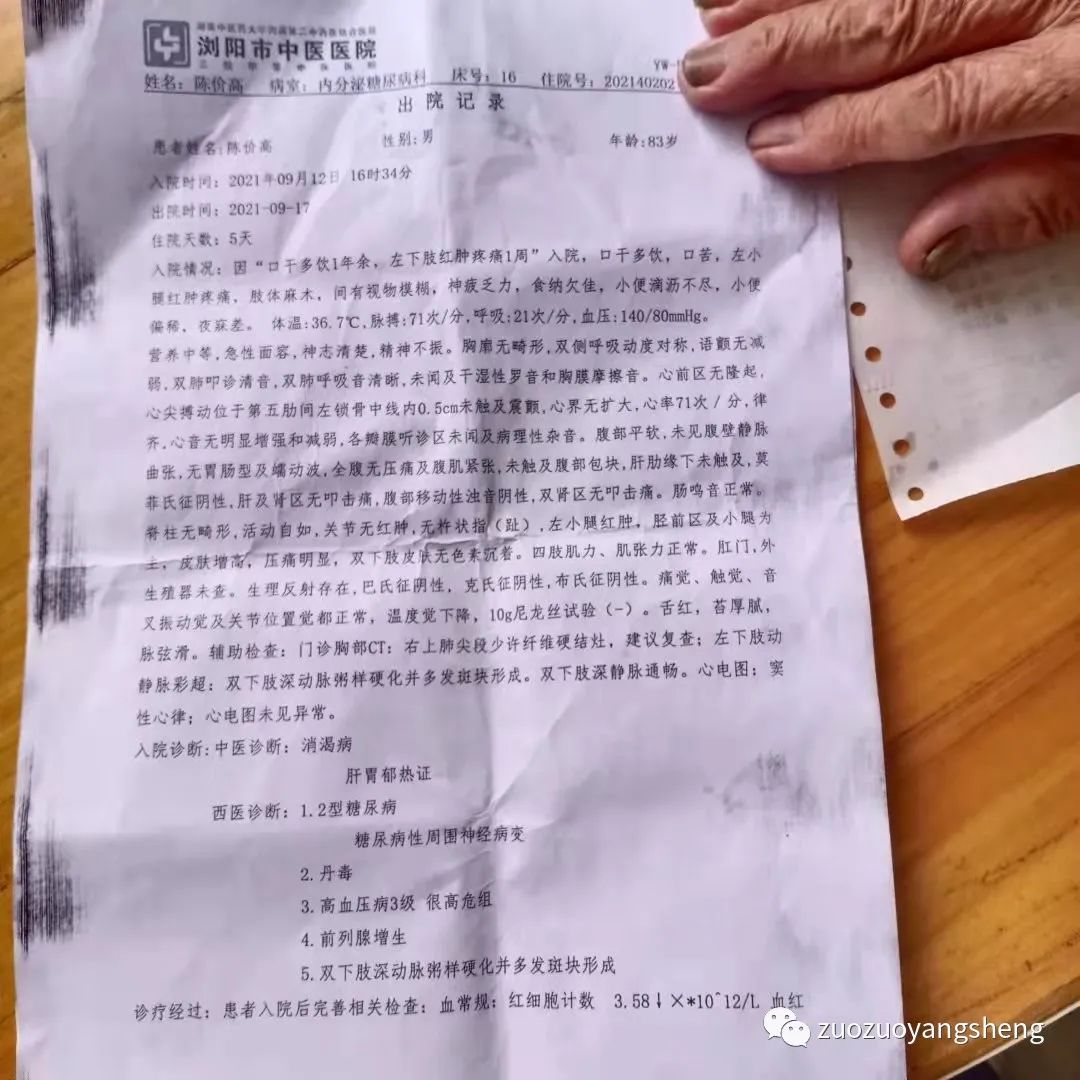 浏阳市中医医院
姓名：陈价高 病室：内分泌糖尿病科 床号：16 住院号：202140202
YW-
出院记录
患者姓名：陈价高 性别：男 年龄：83岁
入院时间：2021年09月12日 16时34分
出院时间：2021-09-17
住院天数：5天
入院情况：因“口干多饮1年余，左下肢红肿疼痛1周”入院，口干多饮，口苦，左小
腿红肿疼痛，肢体麻木，间有视物模糊，神疲乏力，食纳欠佳，小便滴沥不尽，小便
偏稀，夜寐差。 体温：36.7℃，脉搏：71次/分，呼吸：21次/分，血压：140/80mmHg。
营养中等，急性面容，神志清楚，精神不振。胸廓无畸形，双侧呼吸动度对称，语颤无减
弱，双肺叩诊清音，双肺呼吸音清晰，未闻及干湿性罗音和胸膜摩擦音。心前区无隆起，
心尖搏动位于第五肋间左锁骨中线内0.5cm未触及震颤，心界无扩大，心率71次／分，律
齐，心音无明显增强和减弱，各瓣膜听诊区未闻及病理性杂音。腹部平软，未见腹壁静脉
曲张，无胃肠型及蠕动波，全腹无压痛及腹肌紧张，未触及腹部包块，肝肋缘下未触及，莫
菲氏征阴性，肝及肾区无叩击痛，腹部移动性浊音阴性，双肾区无叩击痛。肠鸣音正常。
脊柱无畸形，活动自如，关节无红肿，无杵状指（趾），左小腿红肿，胫前区及小腿为
主，皮肤增高，压痛明显，双下肢皮肤无色素沉着。四肢肌力、肌张力正常。肛门，外
生殖器未查。生理反射存在，巴氏征阴性，克氏征阴性，布氏征阴性。痛觉、触觉、音
叉振动觉及关节位置觉都正常，温度觉下降，10g尼龙丝试验（-）。舌红，苔厚腻，
脉弦滑。辅助检查：门诊胸部CT：右上肺尖段少许纤维硬结灶，建议复查；左下肢动
静脉彩超：双下肢深动脉粥样硬化并多发斑块形成。双下肢深静脉通畅。心电图：窦
性心律；心电图未见异常。
入院诊断：中医诊断：消渴病
肝胆郁热证
西医诊断：1.2型糖尿病
糖尿病性周围神经病变
2.丹毒
3.高血压病3级 很高危组
4.前列腺增生
5.双下肢深动脉粥样硬化并多发斑块形成
诊疗经过：患者入院后完善相关检查：血常规：红细胞计数 3.58↓×*10^12/L 血红
zuozuoyangsheng